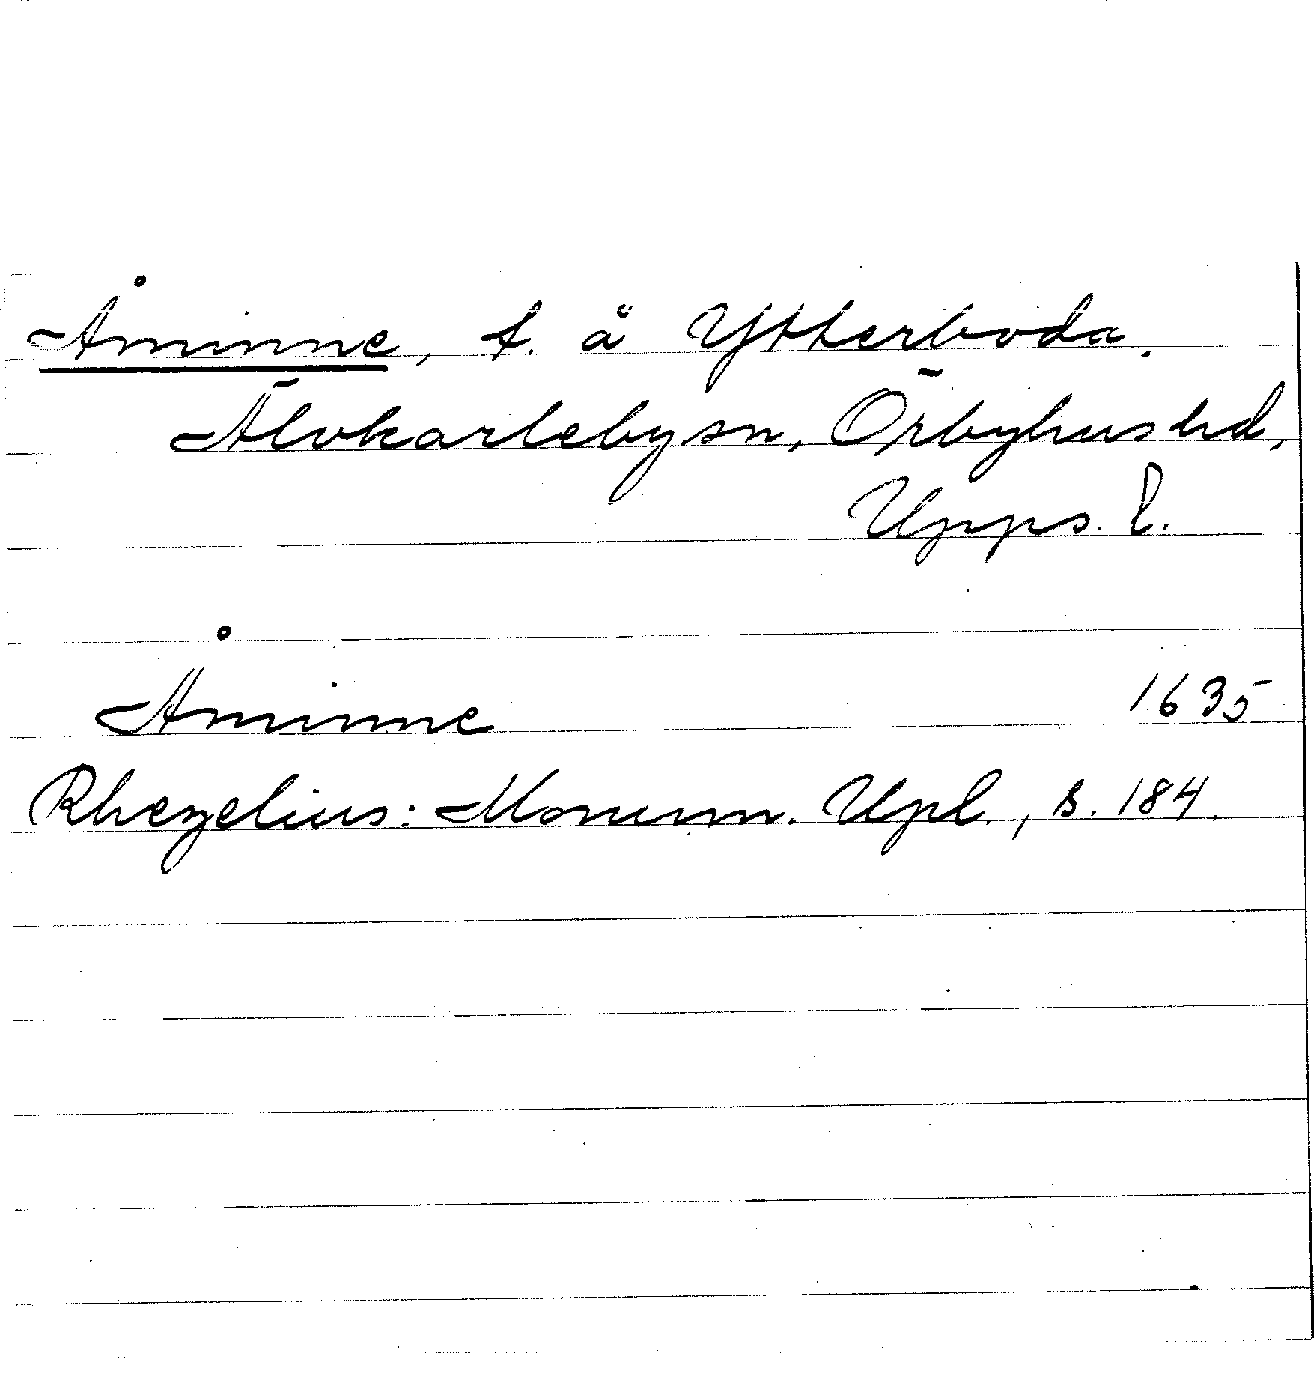 Åminne, t. å Ytterboda.
Älvkarleby sn, Örbyhus hd,
Upps. l.
Åminne 1635
Rhezelius: Monum. Upl., s. 184.